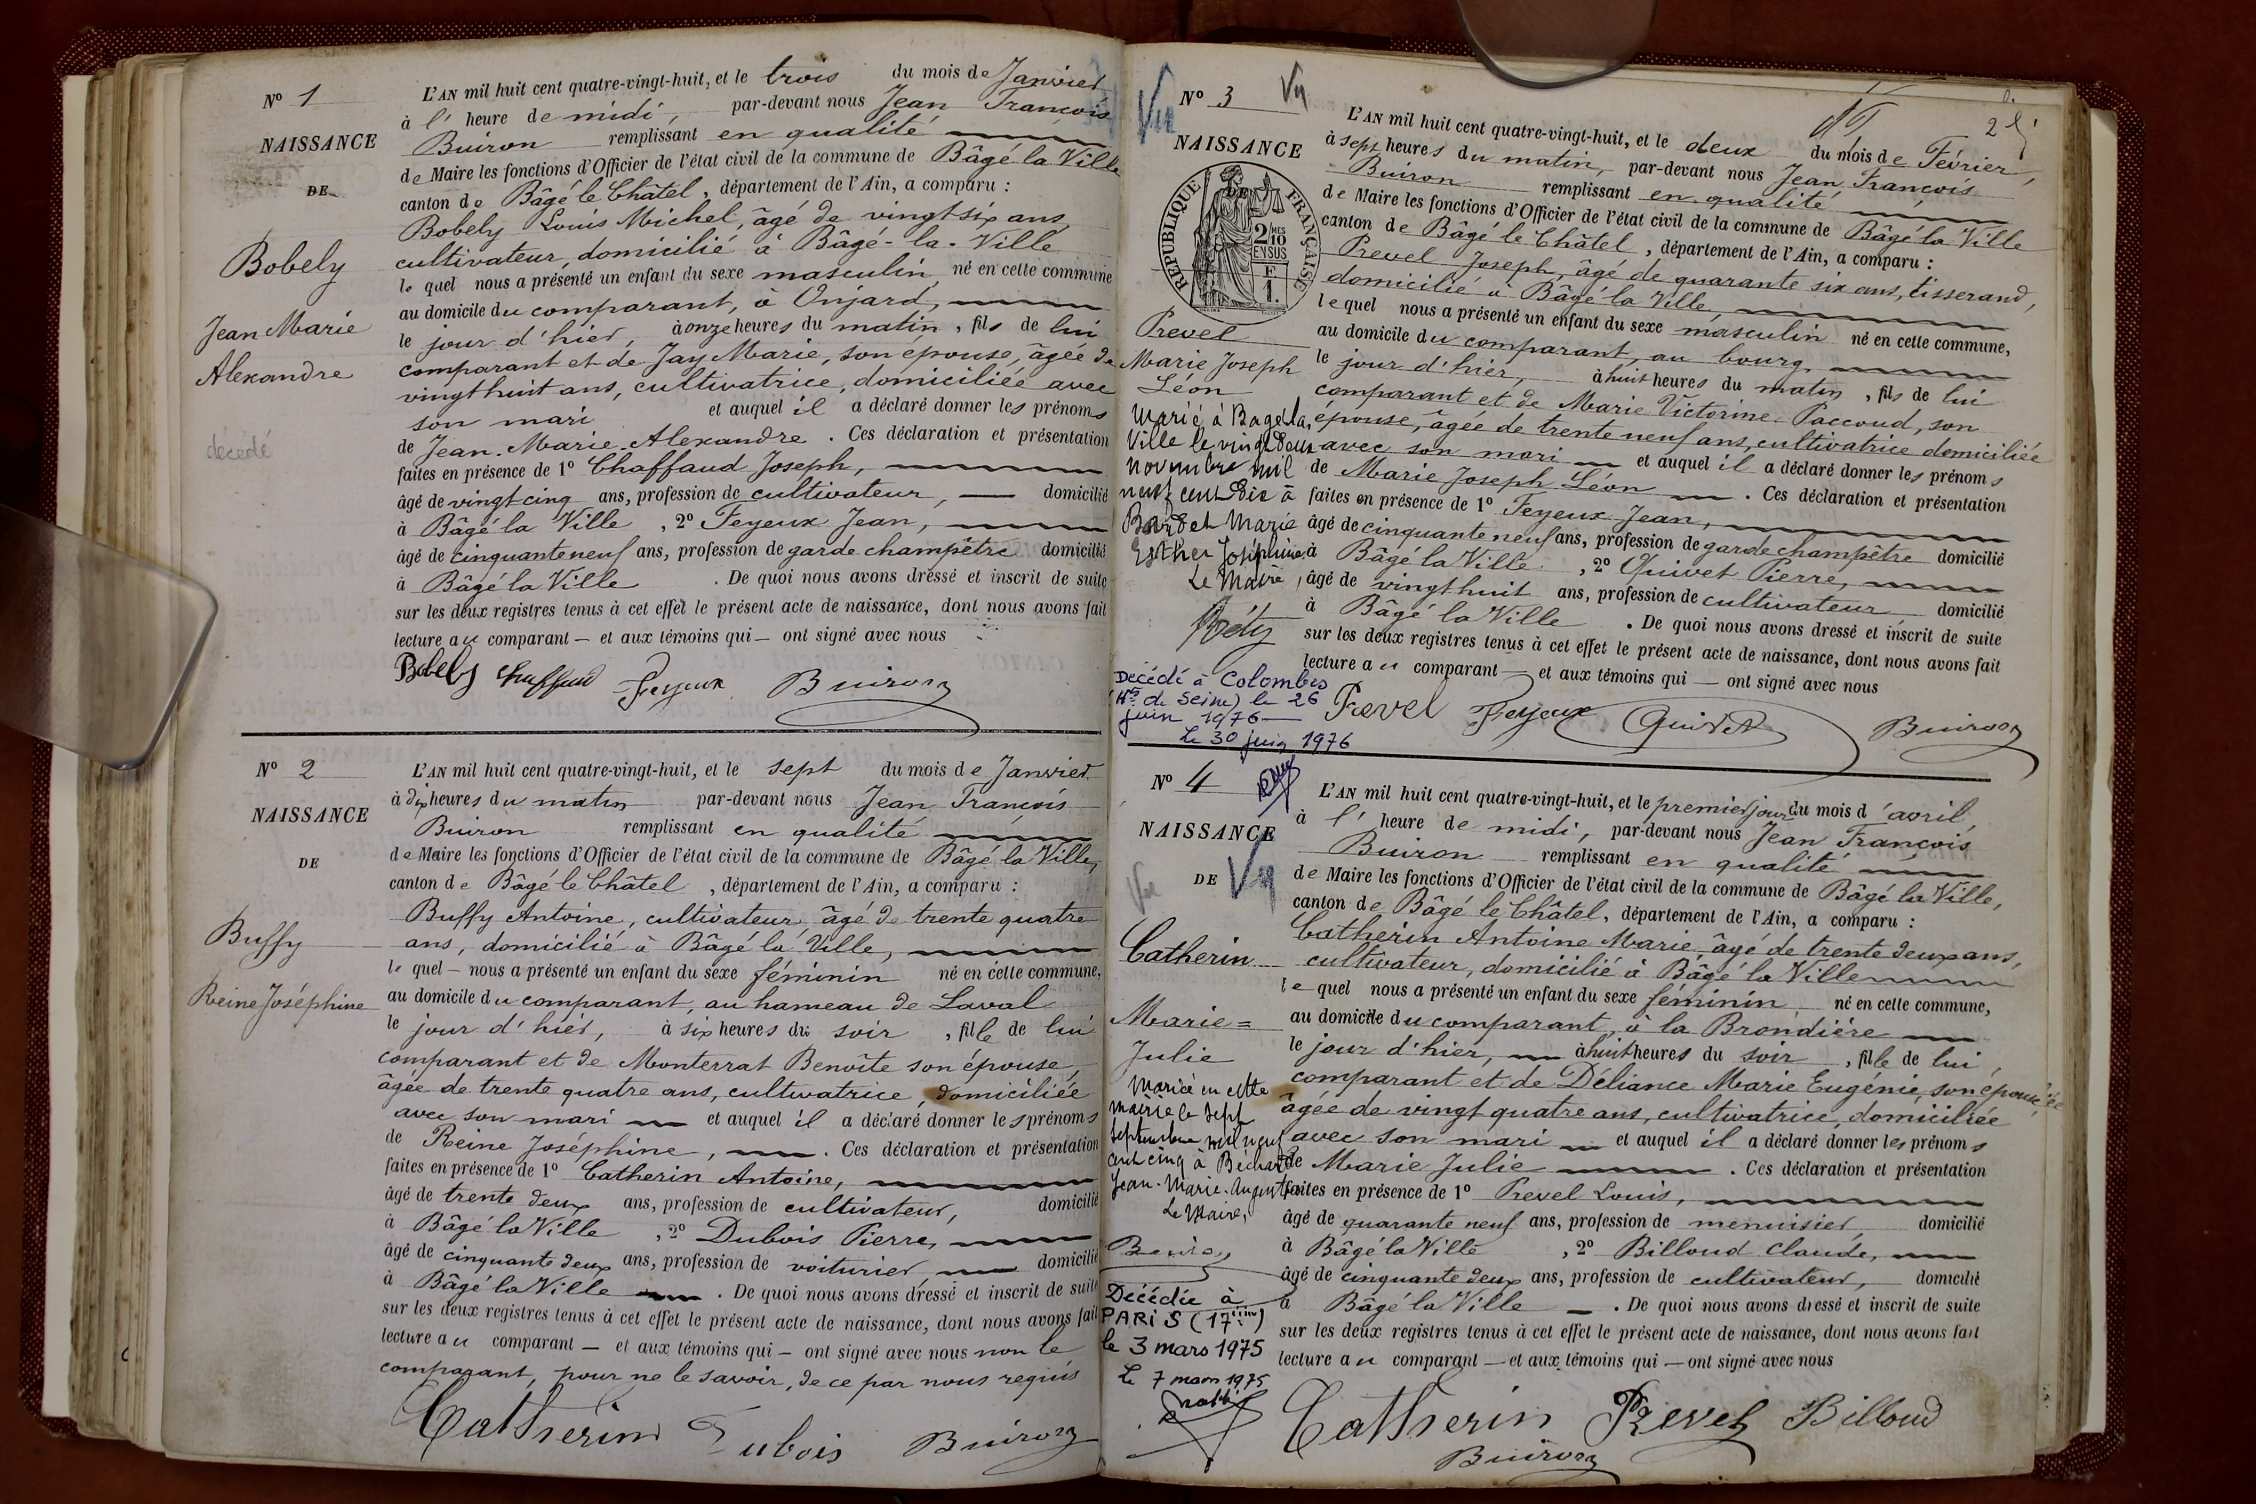 N° 1
NAISSANCE
DE
Bobely
Jean Marie
Alexandre
décédé
L'AN mil huit cent quatre-vingt-huit, et le trois du mois de Janvier
à l' heure de midi, par-devant nous Jean François
Buiron remplissant en qualité
de Maire les fonctions d'Officier de l'état civil de la commune de Bâgé la Ville
canton de Bâgé le Châtel, département de l'Ain, a comparu :
Bobely Louis Michel, âgé de vingt six ans
cultivateur, domicilié à Bâgé-la-Ville
le quel nous a présenté un enfant du sexe masculin né en cette commune
au domicile du comparant, à Onjard,
le jour d'hier, à onze heures du matin, fils de lui
comparant et de Jay Marie, son épouse, âgée de
vingt huit ans, cultivatrice, domiciliée avec
son mari et auquel il a déclaré donner les prénoms
de Jean-Marie-Alexandre. Ces déclaration et présentation
faites en présence de 1° Chaffaud Joseph,
âgé de vingt cinq ans, profession de cultivateur, domicilié
à Bâgé la Ville, 2° Feyeux Jean,
âgé de cinquante neuf ans, profession de garde champêtre domicilié
à Bâgé la Ville. De quoi nous avons dressé et inscrit de suite
sur les deux registres tenus à cet effet le présent acte de naissance, dont nous avons fait
lecture au comparant — et aux témoins qui — ont signé avec nous
Bobely Chaffaud Feyeux Buiron
N° 2
NAISSANCE
DE
Buffy
Reine Joséphine
L'AN mil huit cent quatre-vingt-huit, et le sept du mois de Janvier
à dix heures du matin par-devant nous Jean François
Buiron remplissant en qualité
de Maire les fonctions d'Officier de l'état civil de la commune de Bâgé la Ville,
canton de Bâgé le Châtel, département de l'Ain, a comparu :
Buffy Antoine, cultivateur, âgé de trente quatre
ans, domicilié à Bâgé la Ville,
le quel — nous a présenté un enfant du sexe féminin né en cette commune,
au domicile du comparant, au hameau de Laval
le jour d'hier, à six heures du soir, fille de lui
comparant et de Monterrat Benoîte son épouse,
âgée de trente quatre ans, cultivatrice, domiciliée
avec son mari et auquel il a déclaré donner les prénoms
de Reine Joséphine,. Ces déclaration et présentation
faites en présence de 1° Catherin Antoine,
âgé de trente deux ans, profession de cultivateur, domicilié
à Bâgé la Ville, 2° Dubois Pierre,
âgé de cinquante deux ans, profession de voiturier, domicilié
à Bâgé la Ville. De quoi nous avons dressé et inscrit de suite
sur les deux registres tenus à cet effet le présent acte de naissance, dont nous avons fait
lecture au comparant — et aux témoins qui — ont signé avec nous non le
comparant, pour ne le savoir, de ce par nous requis
Catherin Dubois Buiron
N° 3
Vu
NAISSANCE
REPUBLIQUE FRANÇAISE
2 MES
10
EN SUS
F
1.
Prevel
Marie Joseph
Léon
Marié à Bagé la
Ville le vingt deux
novembre mil
neuf cent dix à
Bordet Marie
Esther Joséphine
Le Maire,
Décédé à Colombes
(Hts de Seine) le 26
juin 1976
Le 30 juin 1976
2
L'AN mil huit cent quatre-vingt-huit, et le deux du mois de Février,
à sept heures du matin, par-devant nous Jean François
Buiron remplissant en qualité
de Maire les fonctions d'Officier de l'état civil de la commune de Bâgé la Ville
canton de Bâgé le Châtel, département de l'Ain, a comparu :
Prevel Joseph, âgé de quarante six ans, tisserand,
domicilié à Bâgé la Ville,
le quel nous a présenté un enfant du sexe masculin né en cette commune,
au domicile du comparant, au bourg,
le jour d'hier, à huit heures du matin, fils de lui
comparant et de Marie Victorine Paccoud, son
épouse, âgée de trente neuf ans, cultivatrice domiciliée
avec son mari et auquel il a déclaré donner les prénoms
de Marie Joseph Léon. Ces déclaration et présentation
faites en présence de 1° Feyeux Jean,
âgé de cinquante neuf ans, profession de garde champêtre domicilié
à Bâgé la Ville, 2° Quivet Pierre,
âgé de vingt huit ans, profession de cultivateur domicilié
à Bâgé la Ville. De quoi nous avons dressé et inscrit de suite
sur les deux registres tenus à cet effet le présent acte de naissance, dont nous avons fait
lecture au comparant — et aux témoins qui — ont signé avec nous
Prevel Feyeux Quivet Buiron
N° 4
NAISSANCE
DE
Vu
Catherin
Marie=
Julie
Mariée en cette
mairie le sept
septembre mil neuf
cent cinq à
Jean-Marie-Augustin
Le Maire,
Buiron
Décédée à
PARIS (17ème)
le 3 mars 1975
Le 7 mars 1975
L'AN mil huit cent quatre-vingt-huit, et le premier jour du mois d'avril,
à l' heure de midi, par-devant nous Jean François
Buiron remplissant en qualité
de Maire les fonctions d'Officier de l'état civil de la commune de Bâgé la Ville,
canton de Bâgé le Châtel, département de l'Ain, a comparu :
Catherin Antoine Marie, âgé de trente deux ans,
cultivateur, domicilié à Bâgé la Ville
le quel nous a présenté un enfant du sexe féminin né en cette commune,
au domicile du comparant, à la Brondière
le jour d'hier, à huit heures du soir, fille de lui
comparant et de Déliance Marie Eugénie, son épouse,
âgée de vingt quatre ans, cultivatrice, domiciliée
avec son mari et auquel il a déclaré donner les prénoms
de Marie Julie. Ces déclaration et présentation
faites en présence de 1° Prevel Louis,
âgé de quarante neuf ans, profession de menuisier domicilié
à Bâgé la Ville, 2° Billoud Claude,
âgé de cinquante deux ans, profession de cultivateur, domicilié
à Bâgé la Ville. De quoi nous avons dressé et inscrit de suite
sur les deux registres tenus à cet effet le présent acte de naissance, dont nous avons fait
lecture au comparant — et aux témoins qui — ont signé avec nous
Catherin Prevel Billoud
Buiron